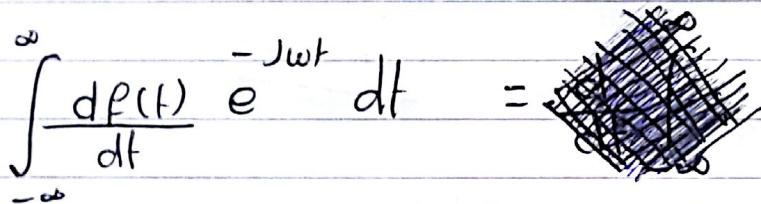 ∫_{-∞}^{∞} \frac{df(t)}{dt} e^{-Jωt} dt =